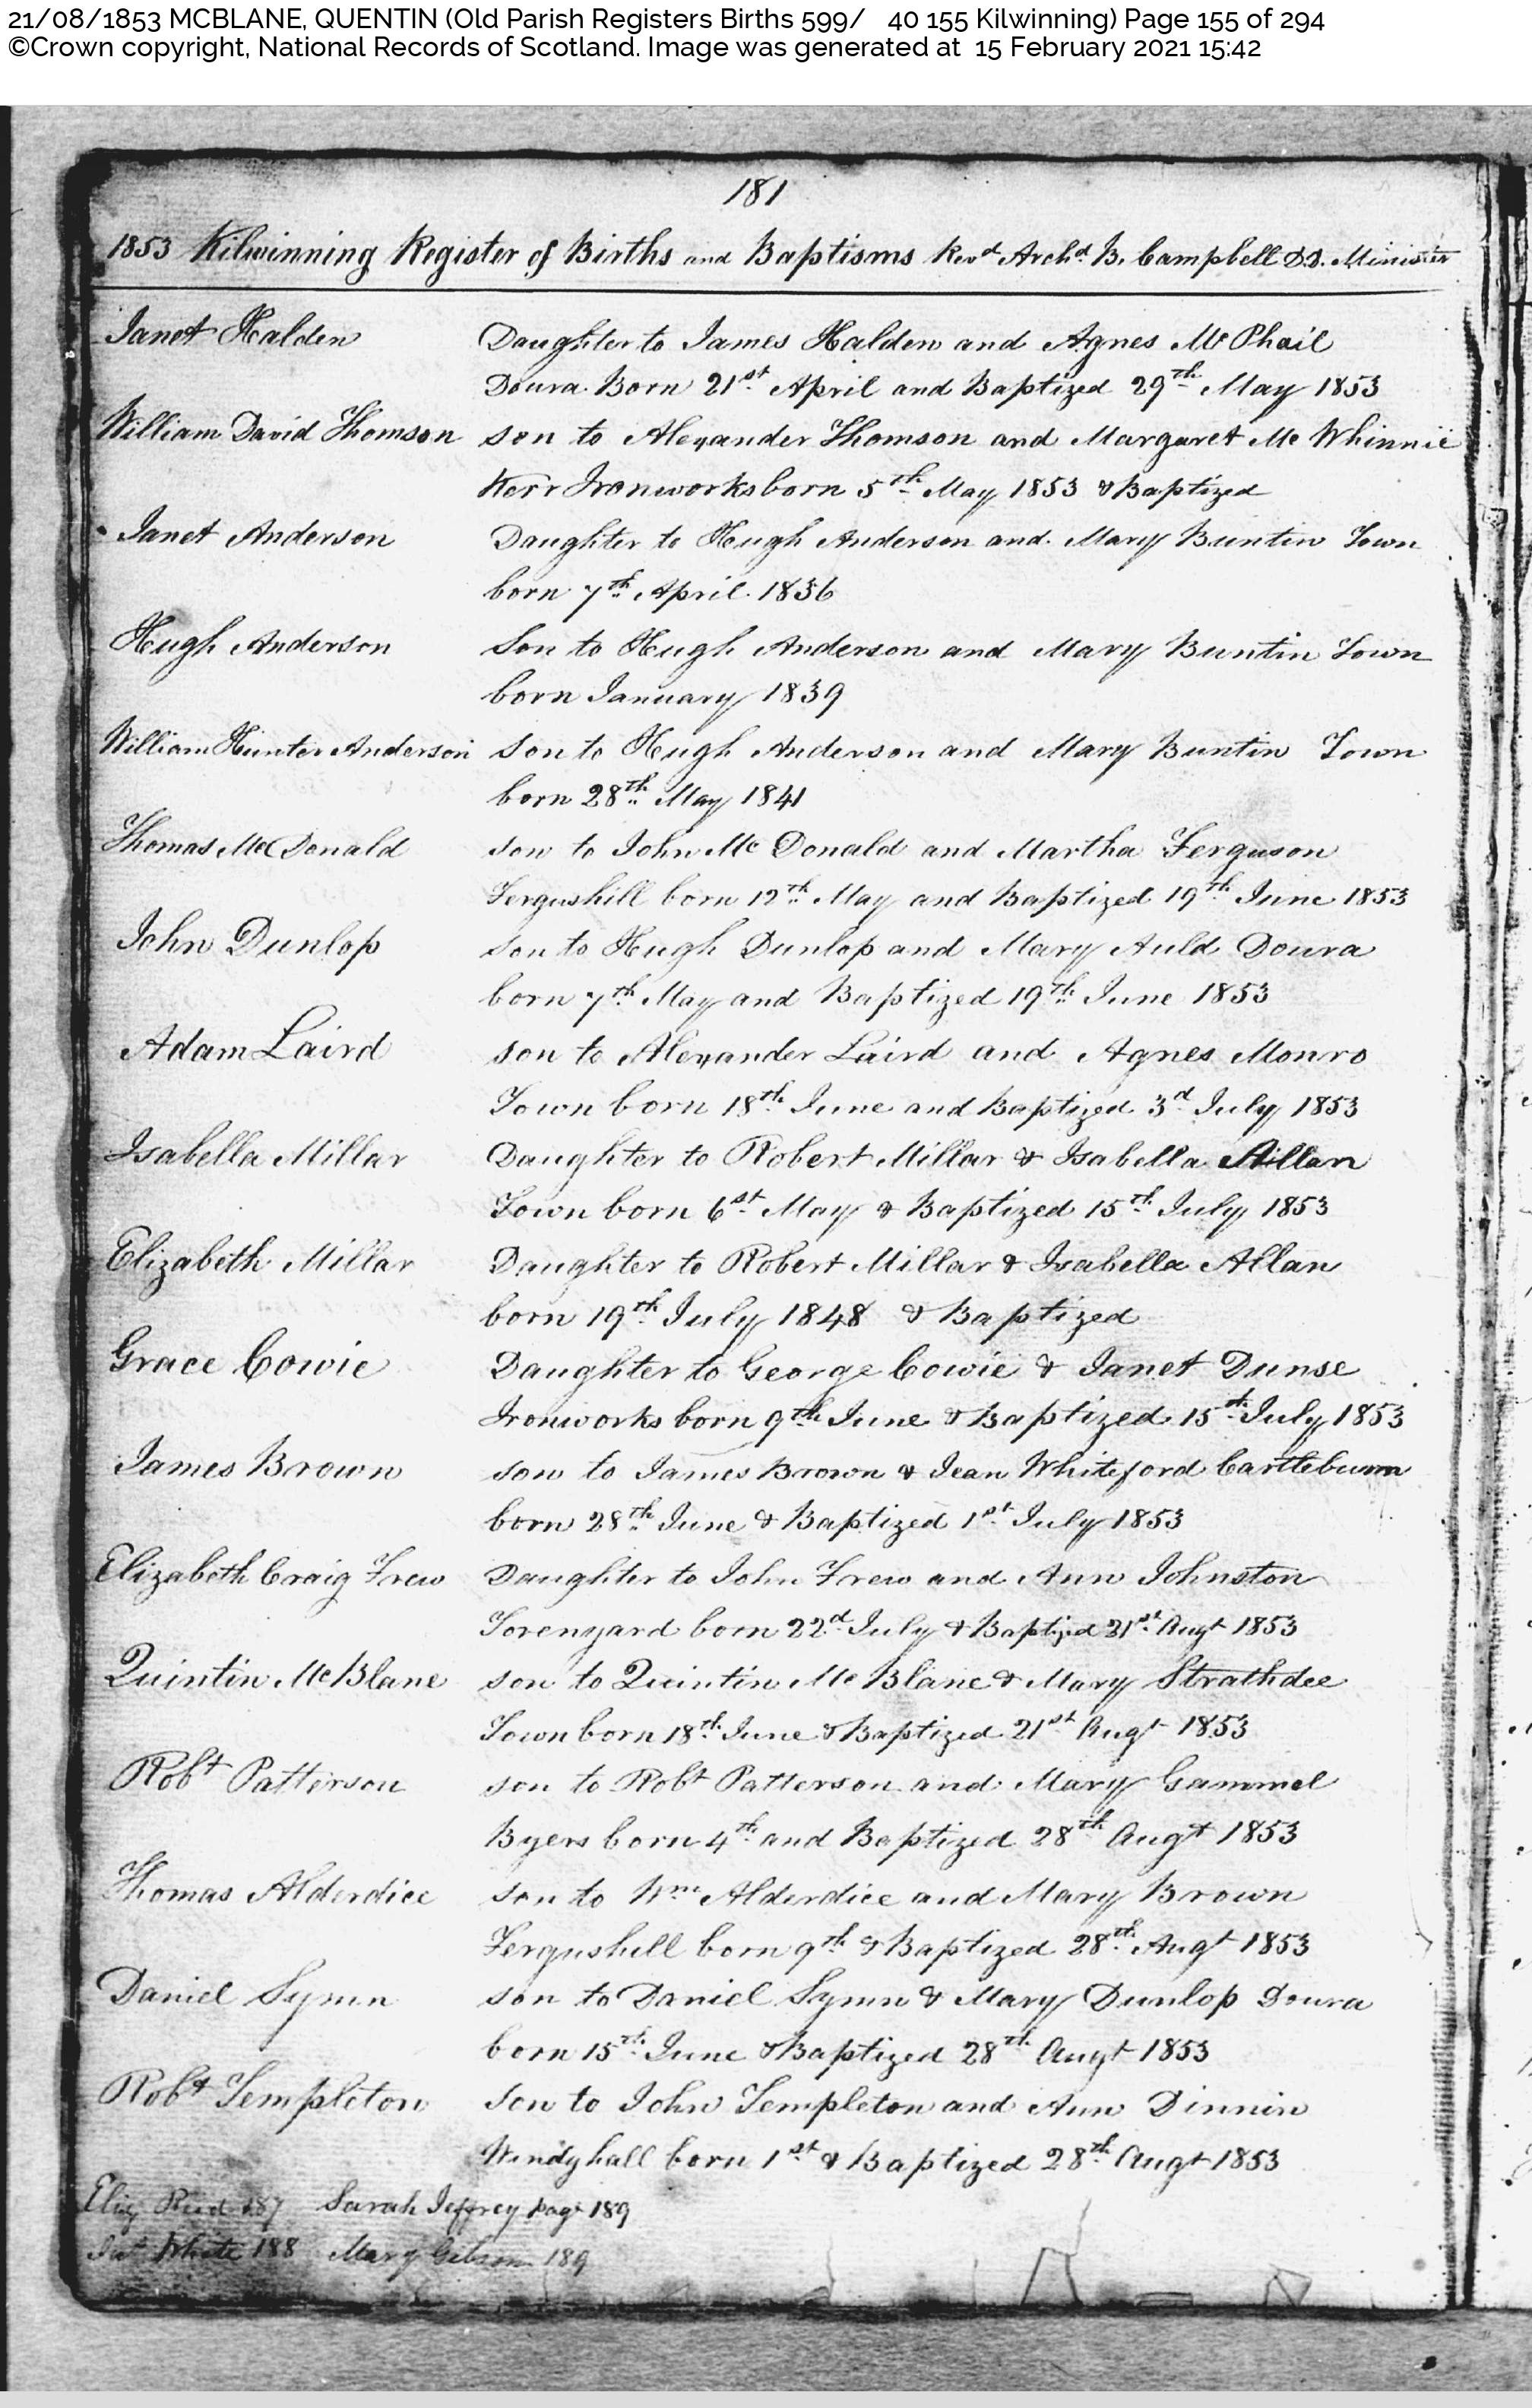 21/08/1853 MCBLANE, QUENTIN (Old Parish Registers Births 599/ 40 155 Kilwinning) Page 155 of 294
©Crown copyright, National Records of Scotland. Image was generated at 15 February 2021 15:42
181
1853 Kilwinning Register of Births and Baptisms Revd Archd B. Campbell D.D. Minister
Janet Halden Daughter to James Halden and Agnes Mc Phail
Doura Born 21st April and Baptized 29th May 1853
William David Thomson son to Alexander Thomson and Margaret Mc Whinnie
Kerr Ironworks born 5th May 1853 & Baptized
Janet Anderson Daughter to Hugh Anderson and Mary Buntin Town
born 7th April 1836
Hugh Anderson Son to Hugh Anderson and Mary Buntin Town
born January 1839
William Hunter Anderson Son to Hugh Anderson and Mary Buntin Town
born 28th May 1841
Thomas Mc Donald son to John Mc Donald and Martha Ferguson
Fergushill born 12th May and Baptized 19th June 1853
John Dunlop son to Hugh Dunlop and Mary Auld Doura
born 7th May and Baptized 19th June 1853
Adam Laird son to Alexander Laird and Agnes Monro
Town born 18th June and Baptized 3d July 1853
Isabella Millar Daughter to Robert Millar & Isabella Allan
Town born 6st May & Baptized 15th July 1853
Elizabeth Millar Daughter to Robert Millar & Isabella Allan
born 19th July 1848 & Baptized
Grace Cowie Daughter to George Cowie & Janet Dunse
Ironworks born 9th June & Baptized 15th July 1853
James Brown son to James Brown & Jean Whiteford Cartleburn
born 28th June & Baptized 1st July 1853
Elizabeth Craig Frew Daughter to John Frew and Ann Johnston
Torenyard born 22d July & Baptized 21st Augt 1853
Quintin Mc Blane son to Quintin Mc Blane & Mary Strathdee
Town born 18th June & Baptized 21st Augt 1853
Robt Patterson son to Robt Patterson and Mary Gammel
Byers born 4th and Baptized 28th Augt 1853
Thomas Alderdice son to Wm Alderdice and Mary Brown
Fergushill born 9th & Baptized 28th Augt 1853
Daniel Symn son to Daniel Symn & Mary Dunlop Doura
born 15th June & Baptized 28th Augt 1853
Robt Templeton Son to John Templeton and Ann Dinnin
Windyhall born 1st & Baptized 28th Augt 1853
Eliz Reid 187 Sarah Jeffrey page 189
White 188 Mary Gibson 189